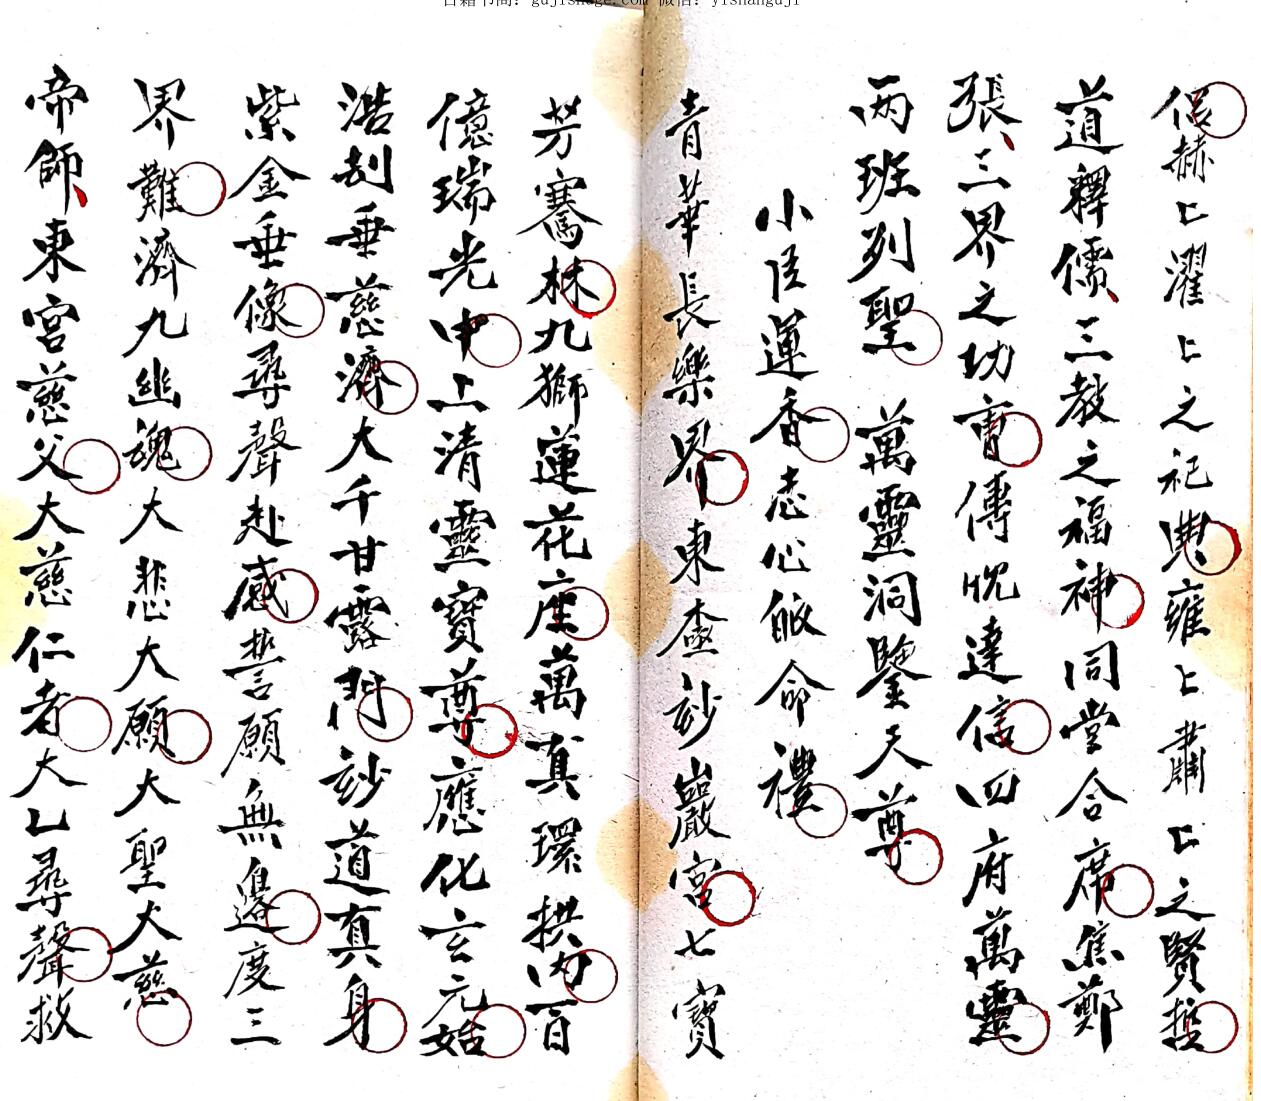 古籍书阁：gujishuge.com 微信：yishanguji
侣赫匕濯匕之祀典雍匕肅匕之賢哲
道釋儒三教之福神同堂合席焦鄭
張三界之功曹傳貺達信四府萬靈
两班列聖 萬靈洞鑒天尊
小臣運香志心皈命禮
青華長樂界東極妙嚴宮七寶
芳騫林九獅蓮花座萬真環拱内百
億瑞光中上清靈寶尊應化玄元始
浩刼垂慈濟大千甘露門玅道真身
紫金垂像尋聲赴感誓願無邊度三
界難濟九幽魂大悲大願大聖大慈
帝師東宮慈父大慈仁者太乙尋聲救